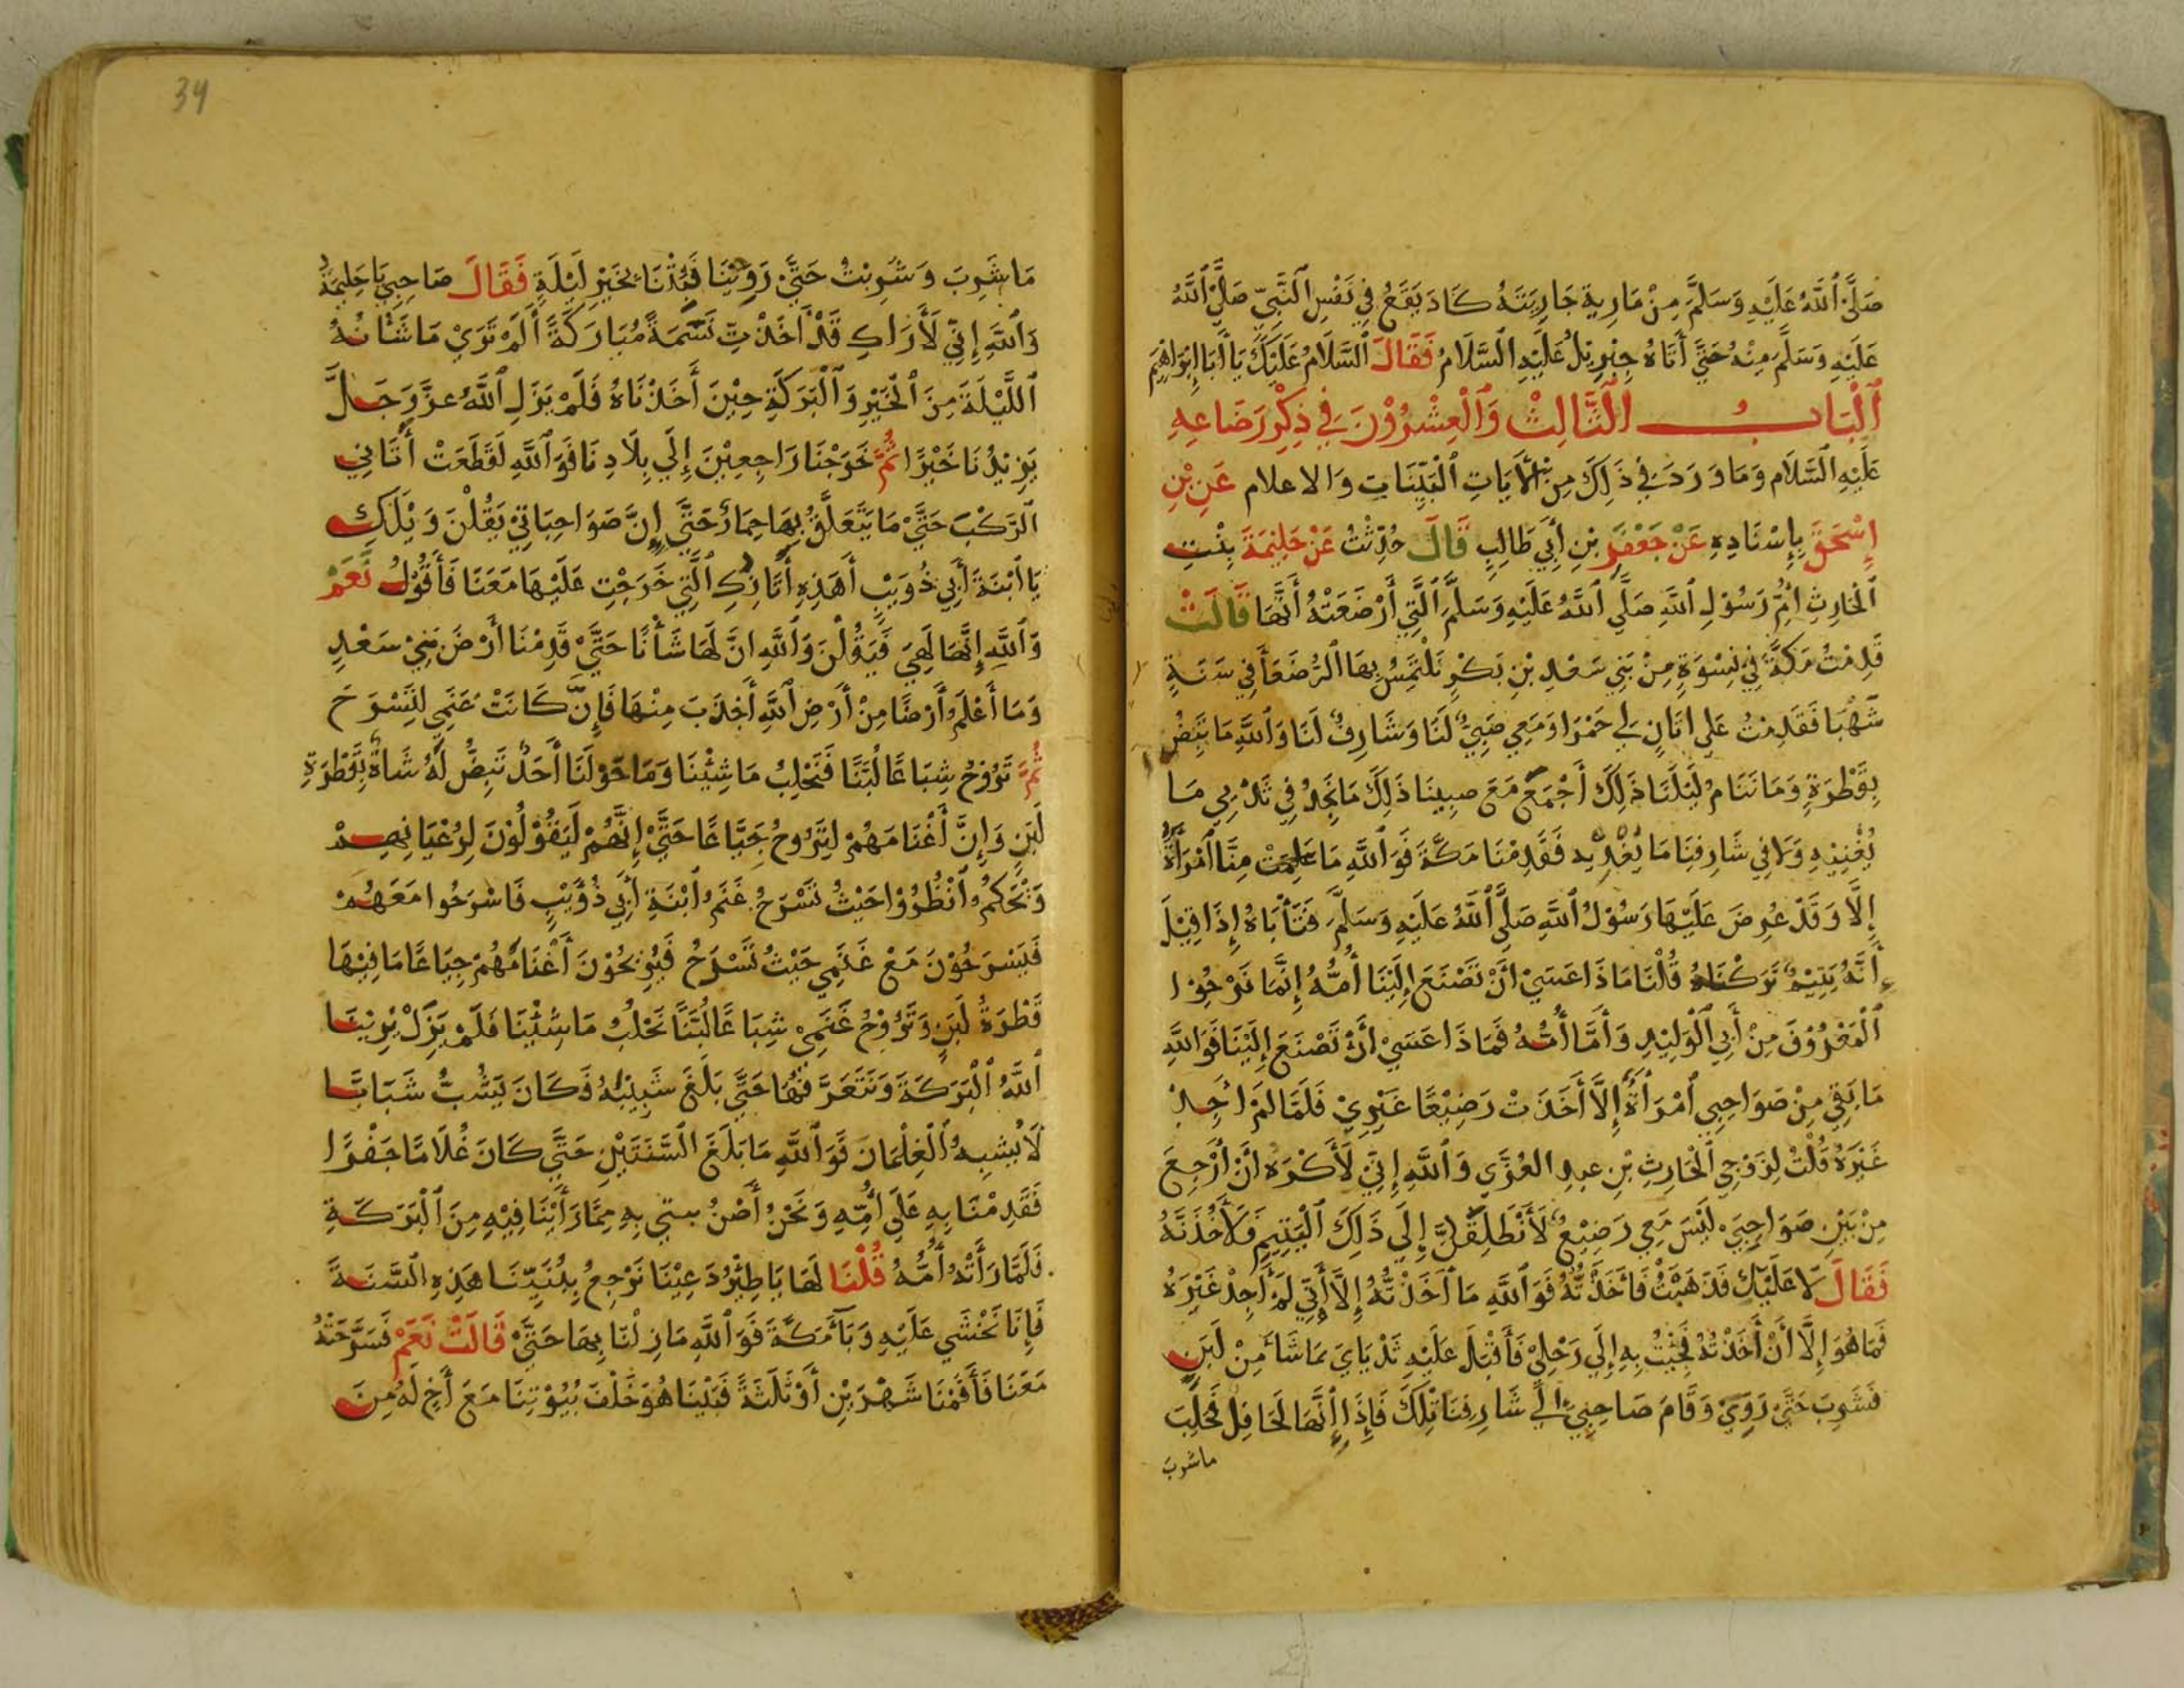 صَلَّى ٱللَّهُ عَلَيْهِ وَسَلَّمَ مِنْ مَارِية جَارِيَتَهُ كَادَ يَقَعُ فِي نَفْسِ ٱلنَّبِيّ صَلَّى ٱللَّهُ
عَلَيْهِ وَسَلَّمَ مِنْهُ حَتَّي أَتَاهُ جِبْرِيْلُ عَلَيْهِ ٱلسَّلَامُ فَقَالَ ٱلسَّلَامُ عَلَيْكَ يَا أَبَا إِبْرَاهِيَم
ٱلْبَابُ ٱلثَّالِثْ وَٱلْعِشْرُوْنَ فِي ذِكْرِ رَضَاعِهِ
عَلَيْهِ ٱلسَّلَام وَمَا وَرَدَ فِي ذَلِكَ مِنْ ٱلأَيَاتِ ٱلْبَيِّنَاتِ وَالاعلام عَنِ بْنِ
إِسْحَقَ بِإِسْنَادِهِ عَنْ جَعْفَرِ بْنِ أَبِي طَالِبٍ قَالَ حُدِّثْتُ عَنْ حَلِيْمَةَ بِنْتِ
ٱلْحَارِثِ أُمِّ رَسُوْلِ ٱللَّهِ صَلَّي ٱللَّهُ عَلَيْهِ وَسَلَّمَ ٱلَّتِي أَرْضَعَتْهُ أَنَّهَا قَالَتْ
قَدِمْتُ مَكَّةَ فِي نِسْوَةٍ مِنْ بَنِي سَعْدِ بْنِ بَكْرٍ نَلْتَمِسُ بِهَا ٱلرُّضَعَأَ فِي سَنَةٍ
شَهْبَا فَقَدِمْتُ عَلي اتَانٍ لِي حَمْرَا وَمَعِي صَبِيٌّ لَنَا وَشَارِفٌ لَنَا وَٱللَّهِ مَا تَبِضُّ
بِقَطْرَةٍ وَمَا نَنَامُ لَيْلَنَا ذَلِكَ أَجْمَعَ مَعَ صبِينا ذَلِكَ مَا نَجِدُ فِي ثَدْيِي مَا
يُغْنِيْهِ وَلَا فِي شَارِفِنَا مَا يُغَذِّيه فَقَدِمْنَا مَكَّةَ فَوَٱللَّهِ مَا عَلِمْتُ مِنَّا ٱمْرَأَةً
إِلَّا وَقَدْ عُرِضَ عَلَيْهَا رَسُوْلُ ٱللَّهِ صَلَّى ٱللَّهُ عَلَيْهِ وَسَلَّمَ فَتَأْبَاهُ إِذَا قِيْلَ
أَنَّهُ يَتِيْمٌ تَرَكْنَاهُ قُلْنَا مَاذَا عَسَيْ أَنْ تَصْنَعَ إِلَيْنَا أُمُّهُ إِنَّمَا نَرْجُوْا
ٱلْمَعْرُوْفَ مِنْ أَبِي ٱلْوَلِيْدِ وَأَمَّا أُمُّهُ فَمَاذَا عَسَيْ أَنْ تَصْنَعَ إِلَيْنَا فَوَاللَّهِ
مَا بَقِيَ مِنْ صَوَاحِبِي ٱمْرَأَةٌ إِلَّا أَخَذَتْ رَضِيْعًا غَيْرِيْ فَلَمَّا لَمْ اَجِدْ
غَيْرَهُ قُلْتُ لِزَوْجِي ٱلْحَارِثِ بْنِ عبدِ العُزَّي وَٱللَّهِ إِنِّيْ لَأَكْرَه أَنْ أَرْجِعَ
مِنْ بَيْنِ صَوَاحِبِيَ لَيْسَ مَعِي رَضِيْعٌ لَأَنْطَلِقَنَّ إِلَى ذَلِكَ ٱلْيَتِيمِ فَلَأَخُذَنَّهُ
فَقَالَ لَا عَلَيْكَ فَذَهَبْتُ فَأَخَذْتُهُ فَوَاللَّهِ مَا أَخَذْتُهُ إِلَّا أَنِّي لَمْ أَجِدْ غَيْرَهُ
فَمَا هُوَ إِلَّا أَنْ أَخَذْتُهُ فَجِئْتُ بِهِ إِلَي رَحْلِيْ فَأَقْبَلَ عَلَيْهِ ثَدْيَايَ بمَا شَأَ مِنْ لَبَنٍ
فَشَرِبَ حَتَّيْ رَوِيَ وَقَامَ صَاحِبِيْ الَيْ شَارِفِنَا تِلْكَ فَإِذَا إِنَّهَا لَحَافِلٌ فَحَلَبَ
ماشرب
34
مَا شَرِبَ وَشَرِبْتُ حَتَّيْ رَوِيْنَا فَبِتْنَا بِخَيْرِ لَيْلَةٍ فَقَالَ صَاحِبِي يَا حَلِيمَةُ
وَٱللَّهِ إِنِّي لَأَرَاكِ قَدْ أَخَذْتِ نَسَمَةً مُبَارَكَةً أَلَمْ تَرَيْ مَا شَانُهُ
ٱللَّيْلَةَ مِنَ ٱلْخَيْرِ وَٱلْبَرَكَةِ حِيْنَ أَخَذْنَاهُ فَلَمْ يَزَلِ ٱللَّهُ عزَّ وَجَلَّ
يَزِيْدُنَا خَيْرًا ثُمَّ خَرَجْنَا رَاجِعِيْنَ إِلَي بِلَادِنَا فَوَٱللَّهِ لَقَطَعَتْ أَتَانِي
ٱلرَّكْبَ حَتَّيْ مَا يَتَعَلَّقُ بِهَا حِمَارٌ حَتَّي إِنَّ صَوَاحِبَاتِيْ يَقُلْنَ وَيْلَكِ
يَا ٱبْنَةَ أَبِي ذُوَيْبٍ أَهَذِهِ أَتَانُكِ ٱلَّتِي خَرَجْتِ عَلَيْهَا مَعَنَا فَأَقُوْلُ نَعَمْ
وَٱللَّهِ إِنَّهَا لَهِيَ فَيَقُلْنَ وَٱللَّهِ انَّ لَهَا شَأْنًا حَتَّيْ قَدِمْنَا أَرْضَ بَنِيْ سَعْدٍ
وَمَا أَعْلَمُ أَرْضًا مِنْ أَرْضِ ٱللَّهِ أَجْدَبَ مِنْهَا فَإِنْ كَانَتْ غَنَمِي لتَسْرَحَ
ثُمَّ تَرُوْحُ شِبَاعًا لُبَّنًا فَنَحْلِبُ مَا شِئْنَا وَمَا حَوْلَنَا أَحَدٌ تَبِضُّ لَهُ شَاةٌ بِقَطْرَةِ
لَبَنٍ وَإِنَّ أَغْنَامَهُمْ لتَرُوحُ جِيَاعًا حَتَّيْ إِنَّهُمْ لَيَقُوْلُوْنَ لِرُعْيَانِهِمْ
وَيْحَكُمْ ٱنْظُرُوْا حَيْثُ تَسْرَحُ غَنَمُ ٱبْنَةِ أَبِي ذُؤَيْبٍ فَاسْرَحُوا مَعَهُمْ
فَيَسْرَحُوْنَ مَعْ غَنَمِي حَيْثُ تَسْرَحُ فَيُرِيْحُوْنَ أَغْنَامُهُمْ جِيَاعًا مَا فِيْهَا
قَطْرَةُ لَبَنٍ وَتَرُوْحُ غَنَمِيْ شِبَاعًا لُبَّنًا نَحْلُبُ مَا شِئْنَا فَلَمْ يَزَلْ يُرِيْنَا
ٱللَّهُ ٱلْبَرَكَةَ وَنَتَعَرَّفُهَا حَتَّي بَلَغَ سَنَتَيْهُ فَكَانَ يَشُبُّ شَبَابًا
لَا يُشبِهُ ٱلْغِلْمَانَ فَوَٱللَّهِ مَا بَلَغَ ٱلسَّنَتَيْنِ حَتَّي كَانَ غُلَامًا جَفْرًا
فَقَدِمْنَا بِهِ عَلَي أُمِّهِ وَنَحْنُ أَضنُّ شئي بِهِ مِمَّا رَأَيْنَا فِيْهِ مِنَ ٱلْبَرَكَةِ
فَلَمَّا رَأَتْهُ أُمُّهُ قُلْنَا لَهَا يَا ظِئْرُ دَعِيْنَا نَرْجِعُ بِبُنَيِّنَا هَذِهِ ٱلسَّنَةَ
فَإِنَا نَخْشَي عَلَيْهِ وَبَأَ مَكَّةَ فَوَٱللَّهِ مَا زِلْنَا بِهَا حَتَّيْ قَالَتْ نَعَمْ فَسَرَّحَتْهُ
مَعَنَا فَأَقَمْنَا شَهْرَيْنِ أَوْ ثَلَثَةً فَبَيْنَا هُوَ خَلْفَ بُيُوْتِنَا مَعَ أَخٍ لَهُ مِنَ